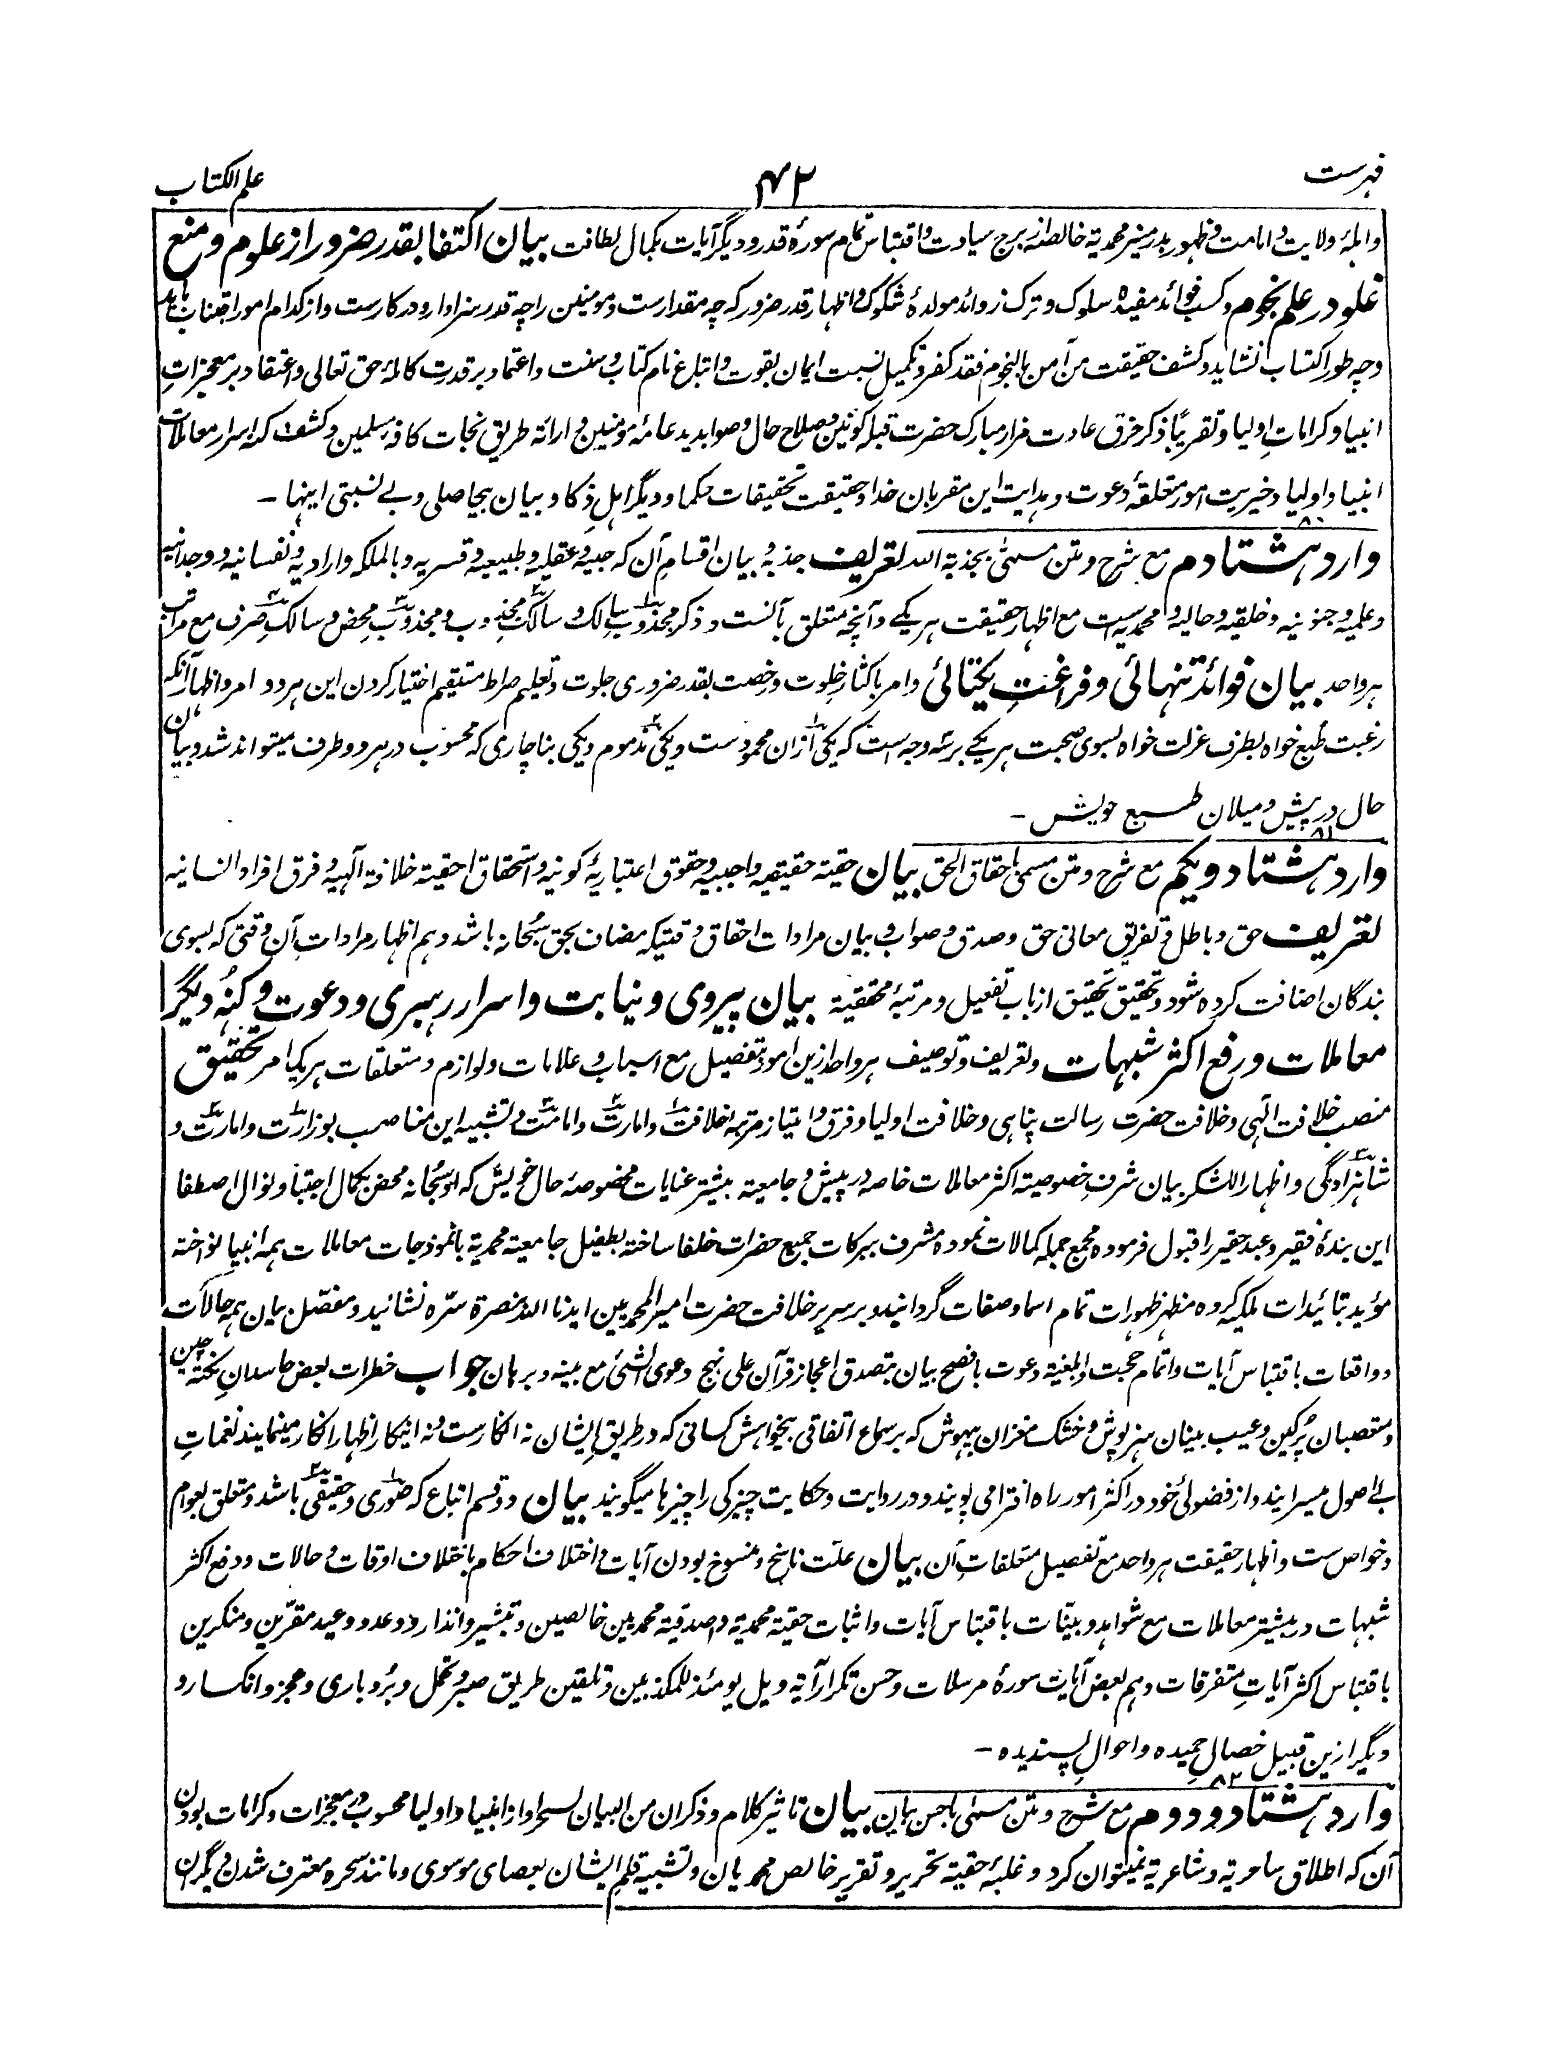 فهرست
۴۲
علم الکتاب
واملهٔ ولایت و امامت و ظهور بدر منیر محمدیة خالصه از برج سیادت و اقتباس تمام سورهٔ قدر و دیگر آیات بکمال لطافت بیان اکتفا بقدر ضرور از علوم و منع
غلو در علم نجوم و کسب فوائد مفیدهٔ سلوک و ترک زوائد مولدهٔ شکوک و اظهار قدر ضرور که چه مقدارست و مومنین را چه قدر سزاوار و درکارست و از کدام امور اجتناب باید
و چه طور اکتساب نشاید و کشف حقیقت من آمن بالنجوم فقد کفر و تکمیل نسبت ایمان بقوت و اتباع تام کتاب و سنت و اعتماد بر قدرت کاملهٔ حق تعالی و اعتقاد بر معجزاتِ
انبیا و کراماتِ اولیا و تقریبًا ذکر خرق عادت مزار مبارک حضرت قبلهٔ کونین و صلاح حال و صوابدید عامهٔ مومنین و ارائهٔ طریق نجات کافهٔ مسلمین و کشف کنه اسرار معاملات
انبیا و اولیا و خیریت امور متعلقهٔ دعوت و هدایت این مقربان خدا و حقیقت تحقیقات حکما و دیگر اهلِ ذکا و بیان بیحاصلی و بے نسبتی اینها ـ
۸۰
وارد هشتادم مع شرح و متن مسمّٰی بجذبة الله تعریف جذبه و بیان اقسام آن که جبیه و عقلیه و طبیعیه و قسریه و بالملکه و ارادیه و نفسانیه و وجدانیه
و علمیه و جنونیه و خلقیه و حالیه و محمدیه است مع اظهار حقیقت هر یکے و آنچه متعلق بآنست و ذکر مجذوب سالک و سالک مجذوب و مجذوب محض و سالکِ صرف مع مراتب
هر واحد بیان فوائد تنهائی و فراغتِ یکتائی و امر باکثار خلوت و رخصت بقدر ضروری جلوت و تعلیم صراط مستقیم اختیار کردن این هر دو امر و اظهار آنکه
رغبت طبع خواه بطرف عزلت خواه بسوی صحبت هر یکے بر سه وجه است که یکی ازان محمودست و یکی مذموم و یکی بناچاری که محسوب در هر دو طرف میتواند شد و بیان
حال درپیش و میلان طبع خویش ـ
۸۱
وارد هشتاد و یکم مع شرح و متن مسمیٰ باحقاق الحق بیان حقیة حقیقیهٔ واجبیه و حقوق اعتباریهٔ کونیه و استحقاق احقیته خلافة آلهیه و فرق افراد انسانیه
تعریف حق و باطل و تفریق معانی حق و صدق و صواب و بیان مرادات احقاق وقتیکه مضاف بحق سُبحانه باشد و هم اظهار مراداتِ آن وقتی که بسوی
بندگان اضافت کرده شود و تحقیق تحقیق از باب تفعیل و مرتبهٔ محققیة بیان پیروی و نیابت و اسرار رهبری و دعوت و کُنهِ دیگر
معاملات و رفع اکثر شبهات و تعریف و توصیف هر واحد ازین امور بتفصیل مع اسباب و علامات و لوازم و متعلقات هر یک امر تحقیق
منصب خلافت الٰهی و خلافت حضرت رسالت پناهی و خلافت اولیا و فرق و امتیاز مرتبهٔ خلافت و امارت و امامت و تشبیه این مناصب بوزارت و امارت و
شاهزادگی و اظهارا للشکر بیان شرفِ خصوصیته اکثر معاملات خاصه درپیش و جامعیته بیشتر عنایات مخصوصهٔ حال خویش که او سُبحانه محض بکمال اجتبا و نوال اصطفا
این بندهٔ فقیر و عبد حقیر را قبول فرموده مجمع جملهٔ کمالات نموده مشرف ببرکات جمیع حضرات خلفا ساخته بطفیل جامعیته محمدیة بانموذجات معاملات همه انبیا نواخته
مؤید بتائیدات ملکیه کرده مظهر ظهورات تمام اسما و صفات گردانید و بر سریر خلافت حضرت امیر المحمدیین ایدنا الله بنصرة سرّه نشانید و مفصّل بیان همه حالات
و واقعات باقتباس آیات و اتمام حجت و ابلغیة دعوت بافصح بیان بتصدق اعجاز قرآن علی نهج دعوی الشئ مع بینه و برهان جواب خطرات بعض حاسدانِ نکته چین
و متعصبان پُرکین و عیب بینان هنر پوش و خشک مغزان بیهوش که بر سماع اتفاقی بیخواهش کسانی که در طریقِ ایشان نه انکارست و نه اینکار اظهار انکار مینمایند نغماتِ
بے اصول میسرایند و از فضولیٔ خود در اکثر امور راه افترا می پویند و در روایت و حکایت چیزکی را چیزها میگویند بیان دو قسم اتباع که صوری و حقیقی باشد و متعلق بعوام
و خواص ست و اظهار حقیقت هر واحد مع تفصیل متعلقاتِ آن بیان علّت ناسخ و منسوخ بودن آیات و اختلاف احکام باختلاف اوقات و حالات و دفع اکثر
شبهات در بیشتر معاملات مع شواهد و بیّنات باقتباس آیات و اثبات حقیة محمدیة و اصدقیة محمدیین خالصین و تبشیر و انذار و وعد و وعید مقرّین و منکرین
باقتباس اکثر آیاتِ متفرقات و هم بعض آیات سورهٔ مرسلات و حسن تکرار آیة ویل یومئذ للمکذبین و تلقین طریق صبر و تحمل و بُردباری و عجز و انکسار و
دیگر ازین قبیل خصالِ حمیده و احوالِ پسندیده ـ
۸۲
وارد هشتاد و دوم مع شرح و متن مسمّٰی باحسن بیان بیان تاثیر کلام و ذکر ان من البیان لسحرا و از انبیا و اولیا محسوب در معجزات و کرامات بودن
آن که اطلاق ساحریة و شاعریة نمیتوان کرد و غلبهٔ حقیة تحریر و تقریر خالص محمدیان و تشبیهٔ قلمِ ایشان بعصای موسوی و مانند سحره معترف شدن دیگران